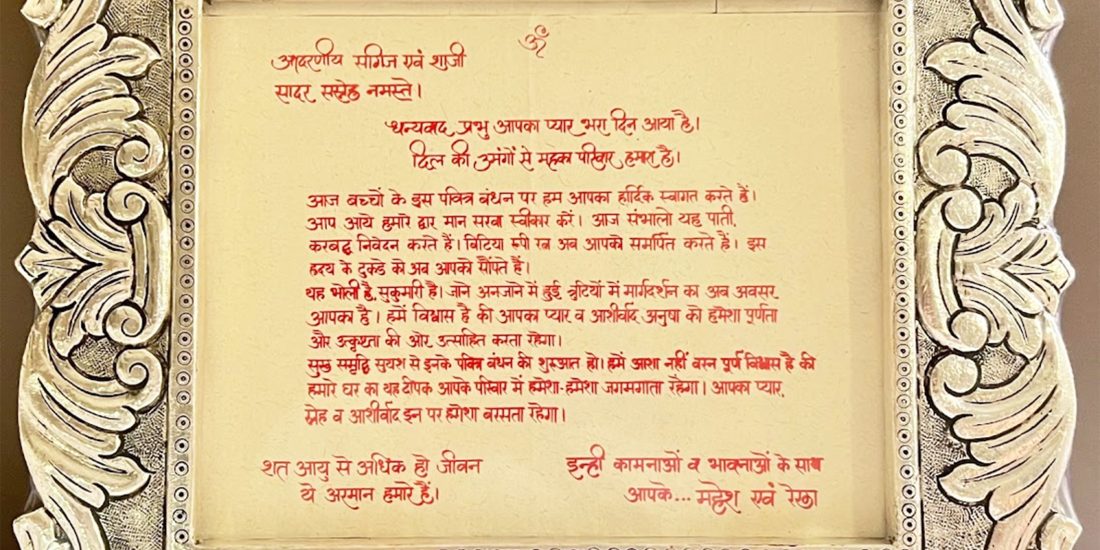 ॐ
आदरणीय सीगिज एवं शाजी
सादर सस्नेह नमस्ते।
धन्यवाद प्रभु आपका प्यार भरा दिन आया है।
दिल की उमंगों से महका परिवार हमारा है।
आज बच्चों के इस पवित्र बंधन पर हम आपका हार्दिक स्वागत करते हैं।
आप आये हमारे द्वार मान सखा स्वीकार करें। आज संभालो यह पाती,
करबद्ध निवेदन करते हैं। बिटिया रूपी रत्न अब आपको समर्पित करते हैं। इस
हृदय के टुकडे को अब आपको सौंपते हैं।
यह भोली है, सुकुमारी है। जाने अनजाने में हुई त्रुटियों में मार्गदर्शन का अब अवसर
आपका है। हमें विश्वास है की आपका प्यार व आशीर्वाद अनुषा को हमेशा पूर्णता
और उत्कृष्टता की ओर उत्साहित करता रहेगा।
सुख समृद्धि सुयश से इनके पवित्र बंधन की शुरुआत हो। हमें आशा नहीं वरन पूर्ण विश्वास है की
हमारे घर का यह दीपक आपके परिवार में हमेशा-हमेशा जगमगाता रहेगा। आपका प्यार,
स्नेह व आशीर्वाद इन पर हमेशा बरसता रहेगा।
शत आयु से अधिक हो जीवन
ये अरमान हमारे हैं।
इन्ही कामनाओं व भावनाओं के साथ
आपके... महेश एवं रेखा